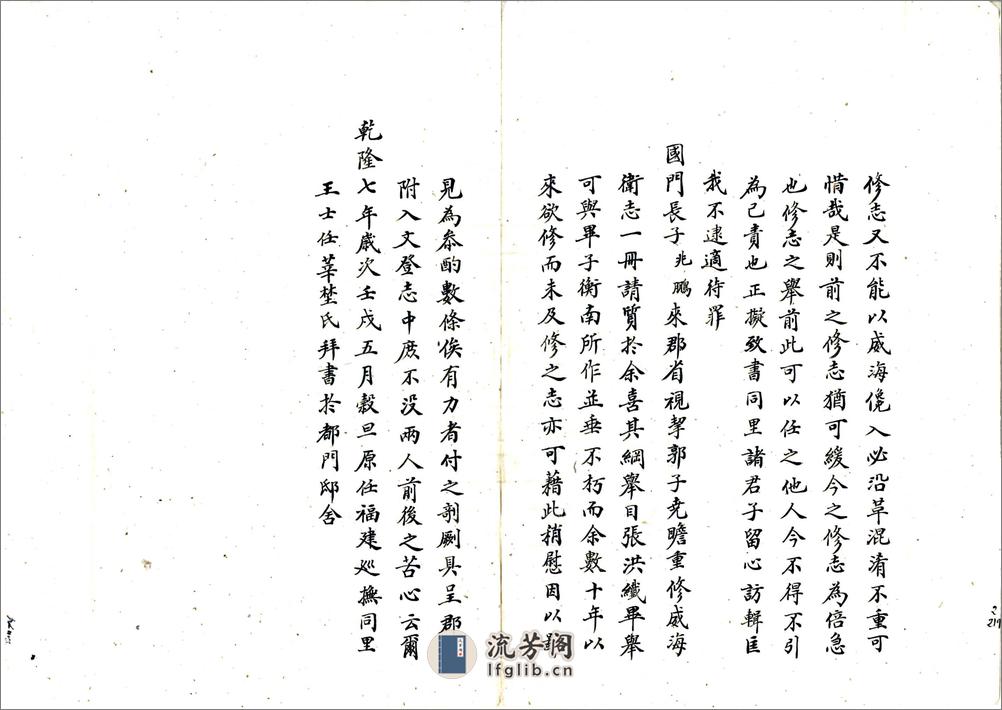 修志又不能以威海儳入必沿革混淆不重可
惜哉是則前之修志猶可緩今之修志為倍急
也修志之舉前此可以任之他人今不得不引
為己責也正擬致書同里諸君子留心訪輯匡
我不逮適待罪
國門長子兆鵬來郡省視挈郭子堯瞻重修威海
衛志一冊請質於余喜其綱舉目張洪纖畢舉
可與畢子衡南所作並垂不朽而余數十年以
來欲修而未及修之志亦可藉此稍慰因以
見為叅酌數條俟有力者付之剞劂具呈郡
附入文登志中庶不没兩人前後之苦心云爾
乾隆七年歲次壬戌五月穀旦原任福建巡撫同里
王士任莘埜氏拜書於都門邸舍
流芳阁
lfglib.cn